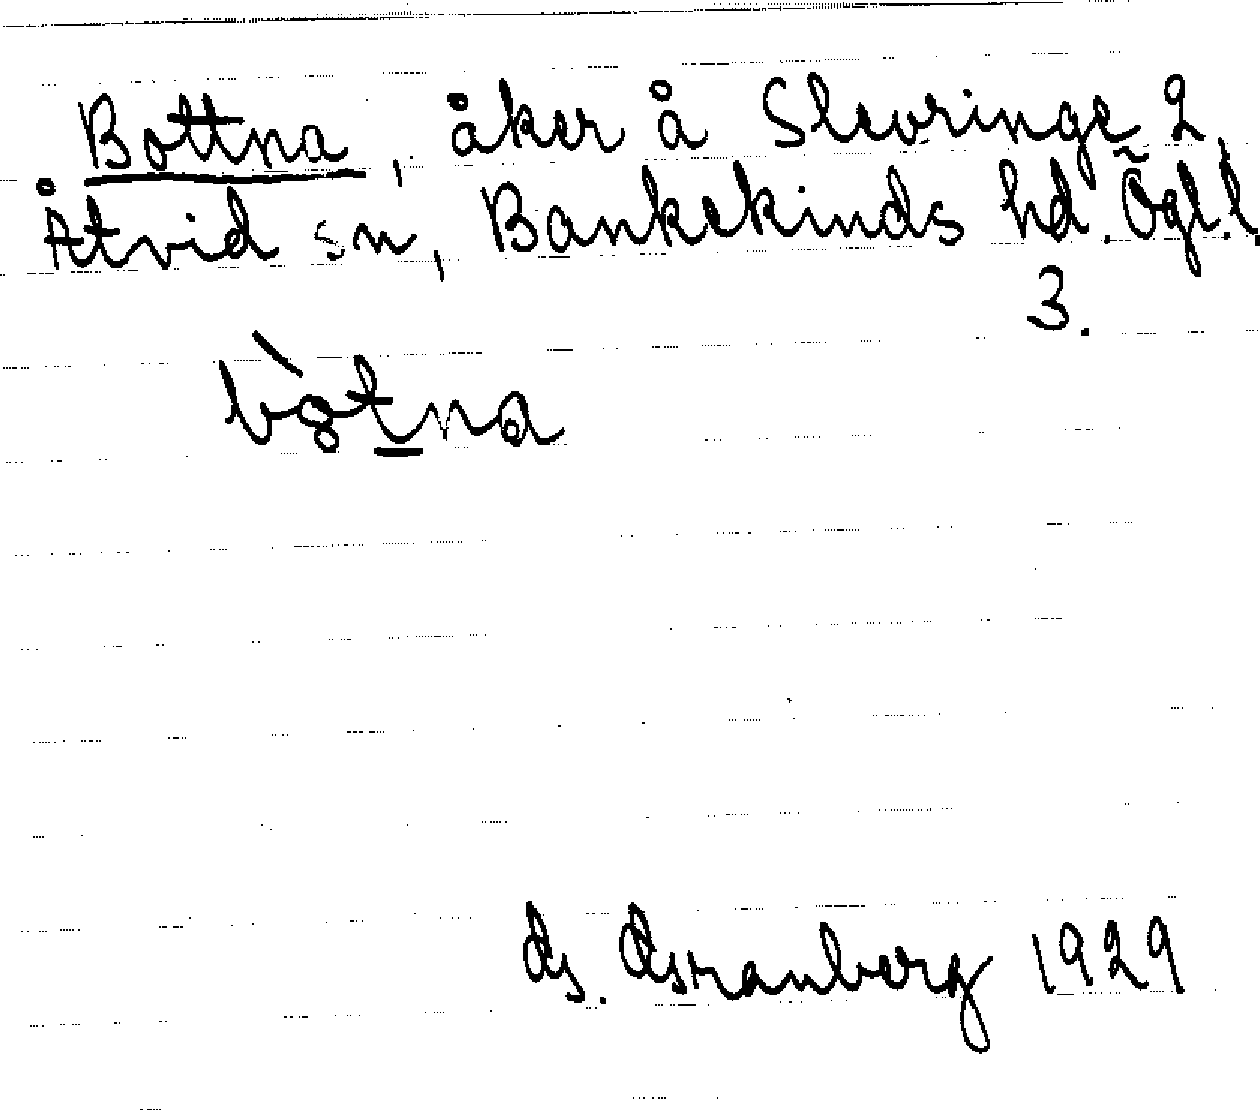 Bottna, åker å Slevringe 2
Åtvid sn, Bankekinds hd. Ögl.l.
3.
bòtna
G. Granberg 1929